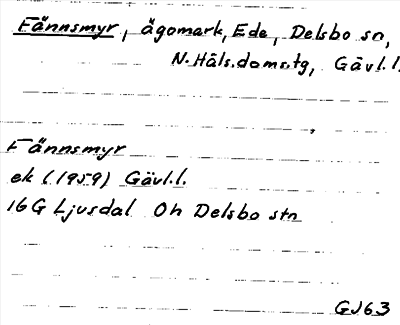 Fännsmyr, ägomark, Ede, Delsbo sn,
N. Häls.doms.tg, Gävl.l.
Fännsmyr
ek (1959) Gävl.l.
16 G Ljusdal Oh Delsbo stn
GJ63